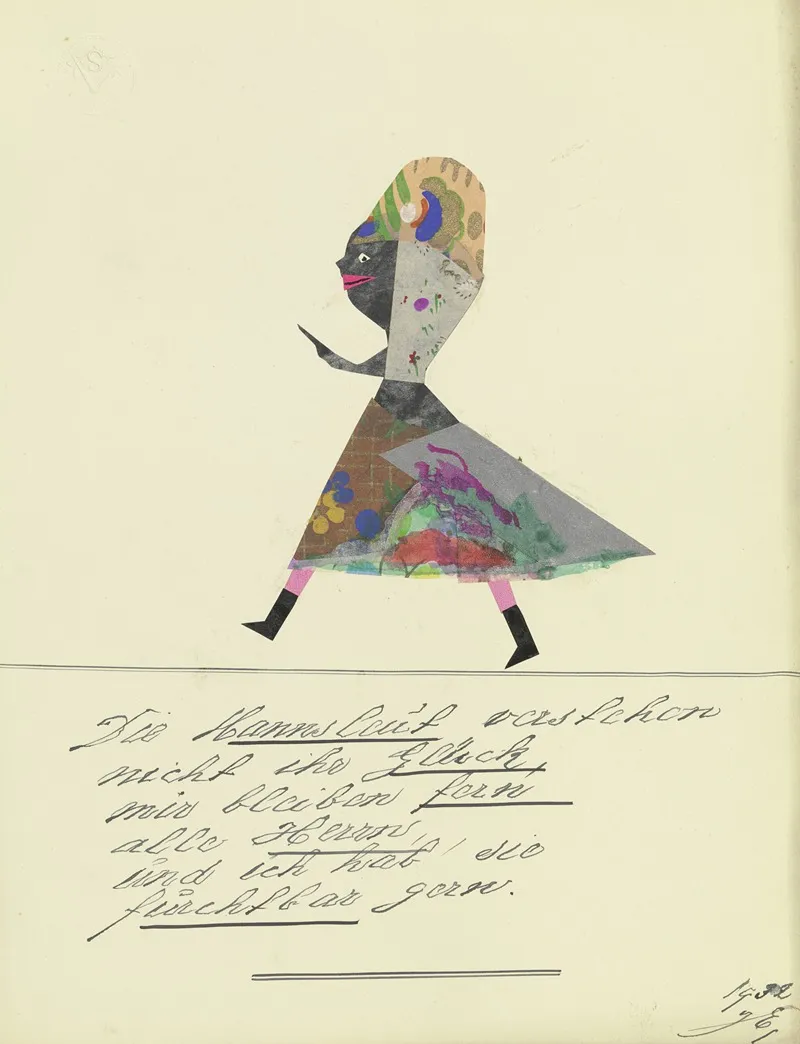 Die Mannsleut verstehen
nicht ihr Glück,
mir bleiben fern
alle Herrn,
und ich hab' sie
fürchtbar gern.
1932